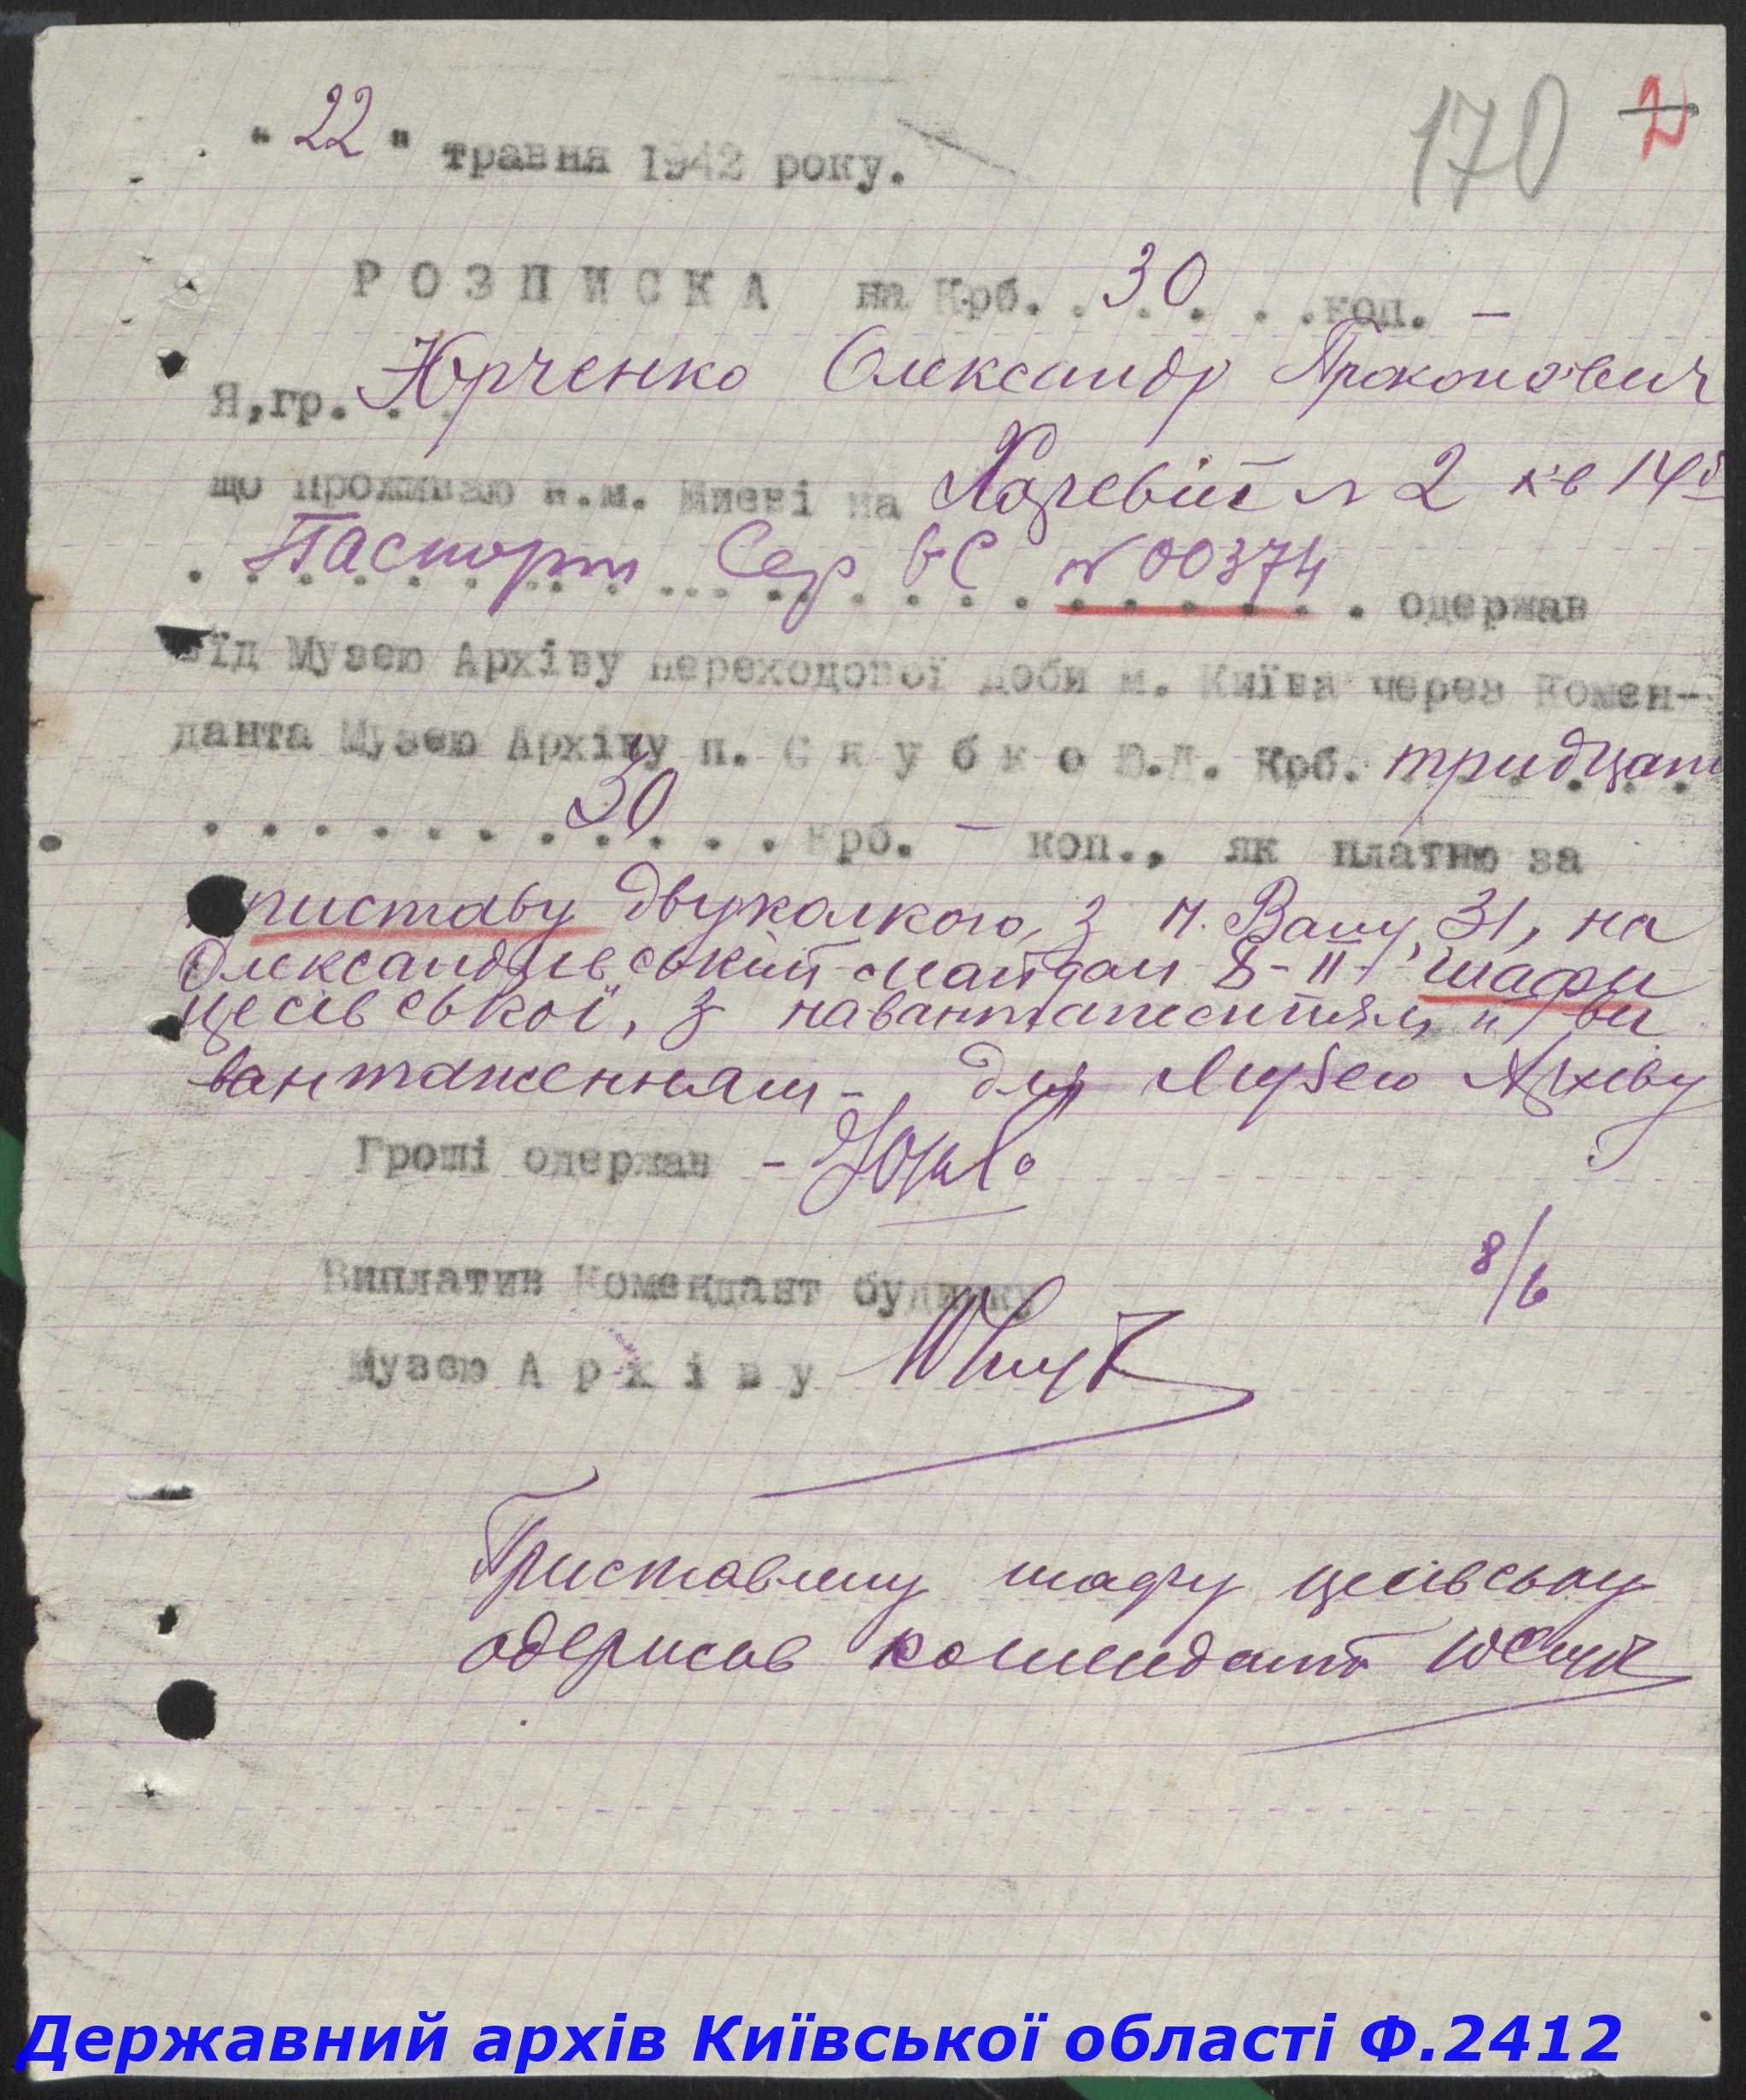 170 2
"22" травня 1942 року.
РОЗПИСКА на Крб. . 30 . . . коп. —
Я,гр. . . Юрченко Олександр Прокопович
що проживаю в.м. Києві на Хоревій № 2 кв 14
. . . Паспорт Сер № 00374 . одержав
від Музею Архіву переходової доби м. Київа через Комен-
данта Музею Архіву п. С к у б к о Ю.Д. Крб. тридцать
. . . . . . . 30 . . . . крб. — коп., як платню за
приставу двуколкою, з Я. Валу, 31, на
Олександрівський майдан 8-II- шафи
цесівської, з навантаженням и ви
вантаженням -, для Музею Архіву
Гроші одержав -
8/6
Виплатив Комендант будинку
Музею А р х і в у
Приставлену шафу цесівську
одержав комендант
Державний архів Київської області Ф.2412